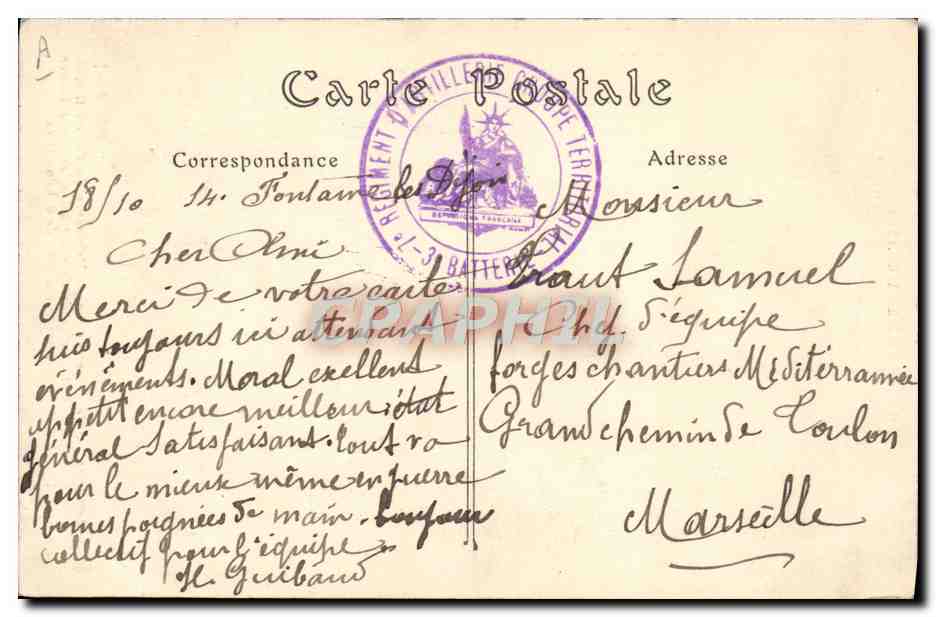 A
Carte Postale
Correspondance
Adresse
RÉGIMENT D'ARTILLERIE GROUPE TERRITORIAL
3e BATTERIE
REPUBLIQUE FRANÇAISE
18/10 14. Fontaine les Dijon
Cher Ami
Merci de votre carte
suis toujours ici attendant
évènéments. Moral exellent
appétit encore meilleur. état
général satisfaisant. Tout va
pour le mieux même en guerre
bonnes poignées de main. bonjour
collectif pour l'équipe.
H. Guibaud
Monsieur
Samuel
Chef d'équipe
forges chantiers Mediterrannée
Grand chemin de Toulon
Marseille
CPAPHIL